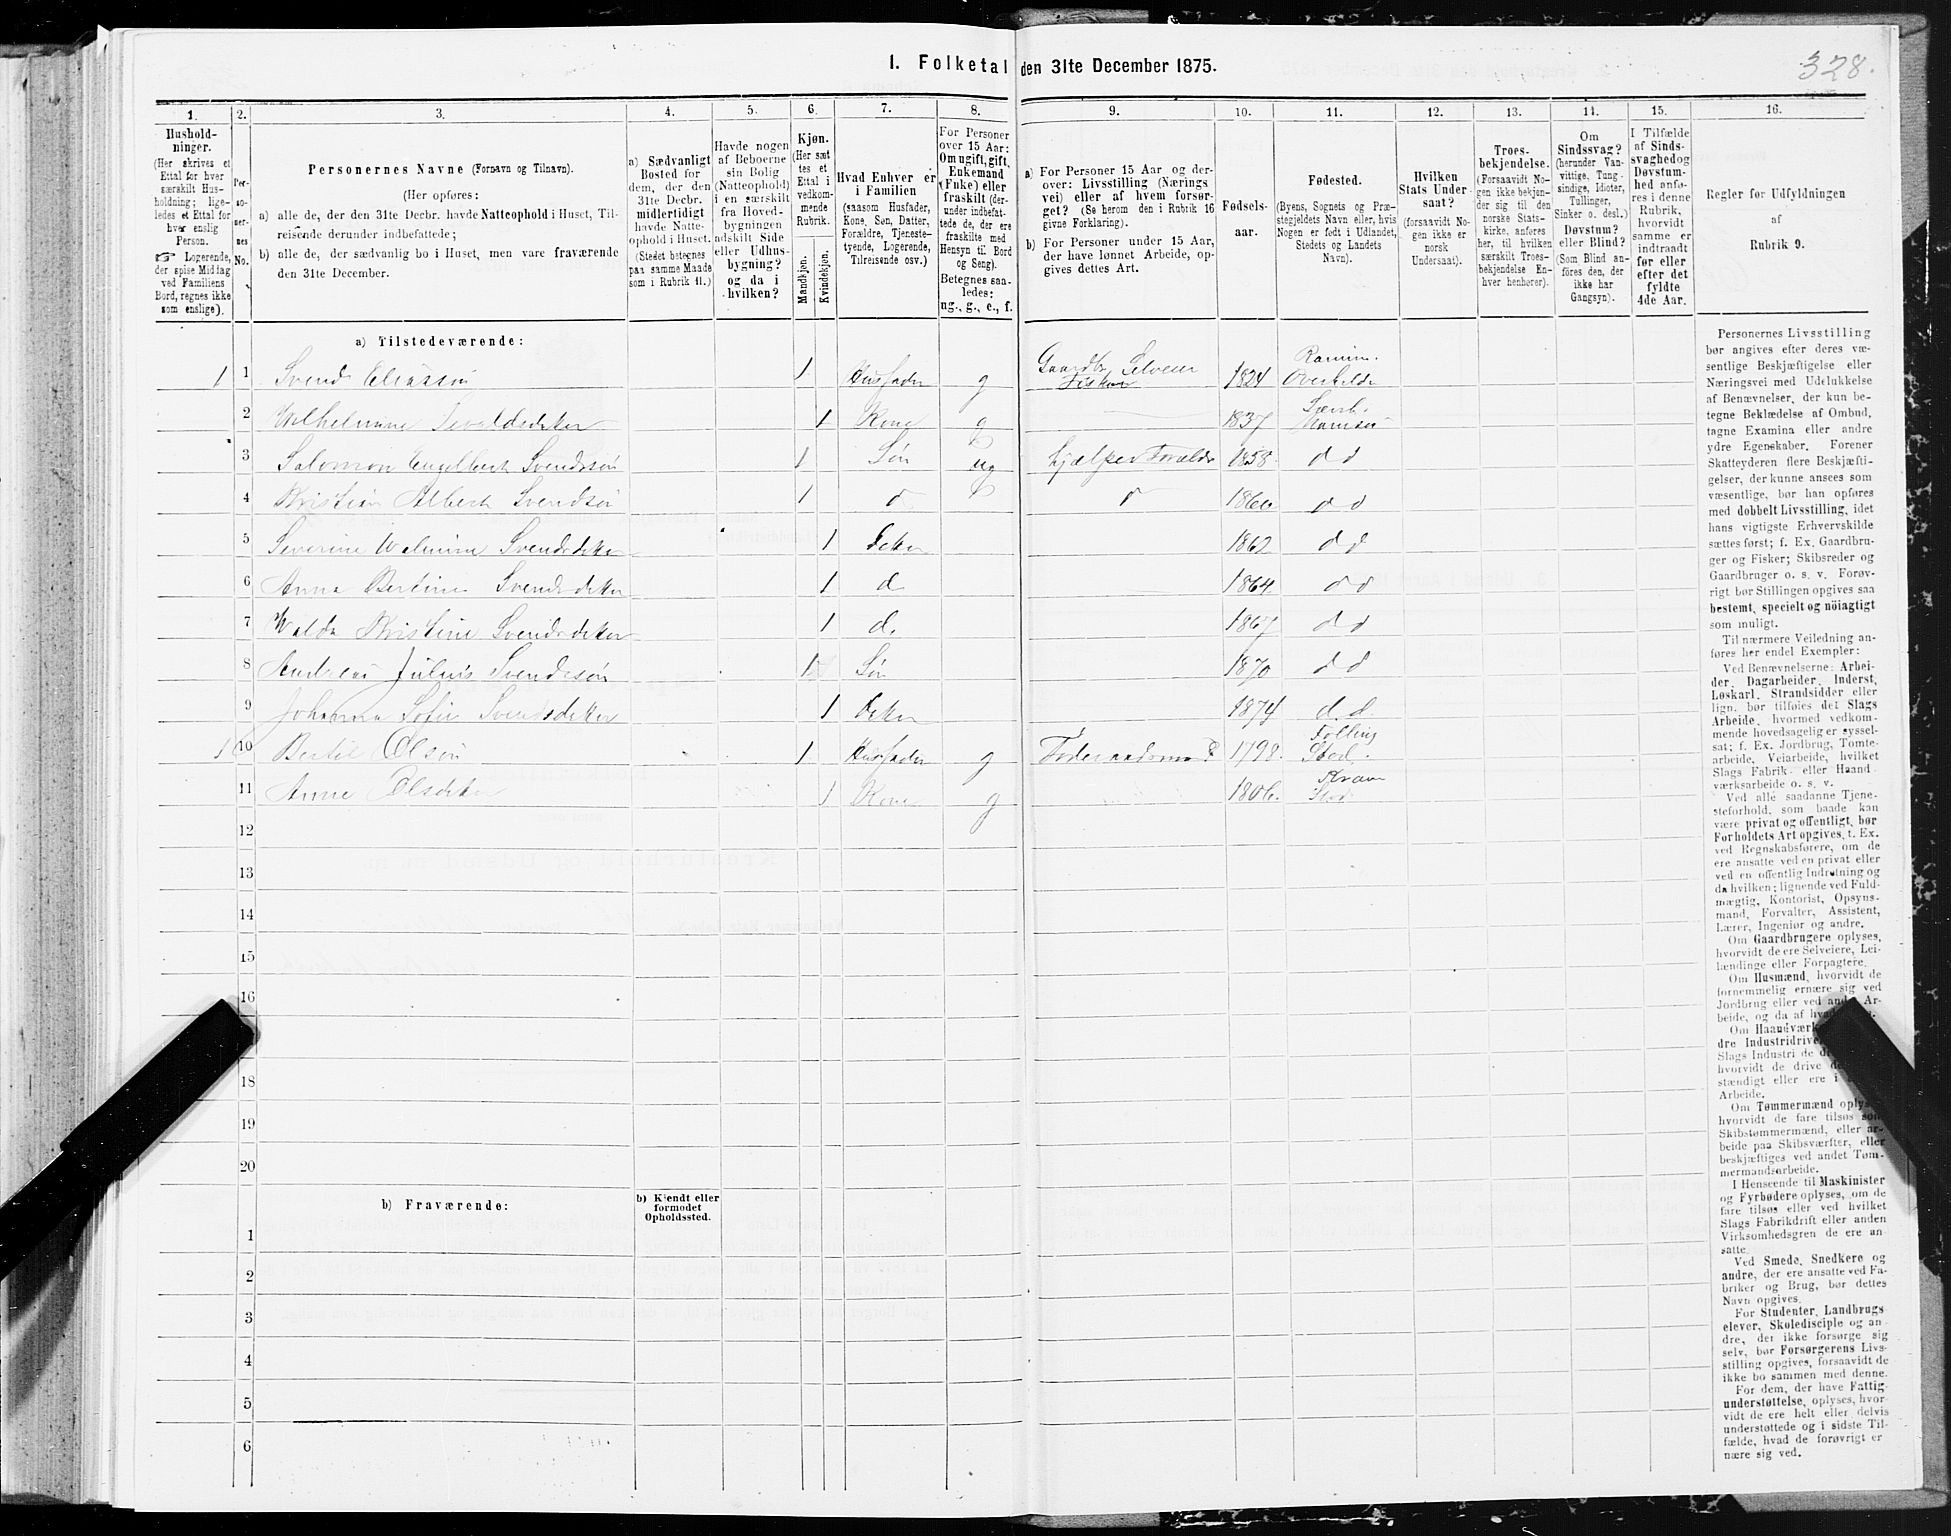 328.
1. Folketal den 31te December 1875.
1.
Hushold-
ninger.
(Her skrives et
Ettal for hver
særskilt Hus-
holdning; lige-
ledes et Ettal for
hver enslig
Person.
☞ Logerende,
der spise Middag
ved Familiens
Bord, regnes ikke
som enslige).
2.
Per-
so-
ner-
nes
No.
3.
Personernes Navne (Fornavn og Tilnavn).
(Her opføres:
a) alle de, der den 31te Decbr. havde Natteophold i Huset, Til-
reisende derunder indbefattede;
b) alle de, der sædvanlig bo i Huset, men vare fraværende
den 31te December.
4.
a) Sædvanligt
Bosted for
dem, der den
31te Decbr.
midlertidigt
havde Natte-
ophold i Huset.
(Stedet betegnes
paa samme Maade
som i Rubrik 11.)
5.
Havde nogen
af Beboerne
sin Bolig
(Natteophold)
i en særskilt
fra Hoved-
bygningen
adskilt Side
eller Udhus-
bygning?
og da i
hvilken?
6.
Kjøn.
(Her sæt
tes et
Ettal i
vedkom-
mende
Rubrik.
Mandkjøn.
Kvindekjøn.
7.
Hvad Enhver er
i Familien
(saasom Husfader,
Kone, Søn, Datter,
Forældre, Tjeneste-
tyende, Logerende,
Tilreisende osv.)
8.
For Personer
over 15 Aar:
Om ugift, gift,
Enkemand
(Enke) eller
fraskilt (der-
under indbefat-
tede de, der ere
fraskilte med
Hensyn til Bord
og Seng).
Betegnes saa-
ledes:
ug., g., e., f.
9.
a) For Personer 15 Aar og der-
over: Livsstilling (Nærings
vei) eller af hvem forsør-
get? (Se herom den i Rubrik 16
givne Forklaring).
b) For Personer under 15 Aar,
der have lønnet Arbeide, op-
gives dettes Art.
10.
Fødsels-
aar.
11.
Fødested.
(Byens, Sognets og Præ-
stegjeldets Navn eller, hvis
Nogen er født i Udlandet,
Stedets og Landets
Navn).
12.
Hvilken
Stats Under-
saat?
(forsaavidt No-
gen ikke er
norsk
Undersaat).
13.
Troes-
bekjendelse.
(Forsaavidt No-
gen ikke bekjen-
der sig til den
norske Stats-
kirke, anføres
her, til hvilken
særskilt Troes-
bekjendelse En-
hver henhører).
14.
Om
Sindssvag?
(herunder Van-
vittige, Tung-
sindige, Idioter,
Tullinger,
Sinker o. desl.)
Døvstum?
eller Blind?
(Som Blind an-
føres den, der
ikke har
Gangsyn).
15.
I Tilfælde
af Sinds-
svaghedog
Døvstum-
hed anfø-
res i denne
Rubrik,
hvorvidt
samme er
indtraadt
før eller
efter det
fyldte
4de Aar.
16.
Regler før Udfyldningen
af
Rubrik 9.
a) Tilstedeværende:
1 1 Svend Eliassøn 1 Husfader g Gaardbr. Selveier Fisker 1824 Overhalde
2 1 Kone g 1837
3 Salomon Engelbert Svendssøn 1 Søn ug hjælper Forældr 1858 d d
4 Kristian Albert Svendsøn 1 d d 1860 d d
5 Severine Svendsdater 1 Dater 1862 d d
6 Anna Bertine Svendsdater 1 d 1864 d d
7 Kristine Svendsdater 1 d. 1867 d d
8 Andreas Julius Svendssøn 1 Søn 1870 d d
9 Johanna Sofie Svendsdater 1 Dater 1874 d. d.
1 10 Bertil Olsøn 1 Husfader g Foderaadsmand 1798 Følling Stod
11 Anne Olsdater 1 Kone g 1806. Kvam Stod
12
13
14
15
16
18
19
20
b) Fraværende:
b) Kjendt eller
formodet
Opholdssted.
1
2
3
4
5
6
Personernes Livsstilling
bør angives efter deres væ-
sentlige Beskjæftigelse eller
Næringsvei med Udelukkelse
af Benævnelser, der kun be-
tegne Beklædelse af Ombud,
tagne Examina eller andre
ydre Egenskaber. Forener
Skatteyderen flere Beskjæfti-
gelser, der kunne ansees som
væsentlige, bør han opføres
med dobbelt Livsstilling, idet
hans vigtigste Erhvervskilde
sættes først; f. Ex. Gaardbru-
ger og Fisker; Skibsreder og
Gaardbruger o. s. v. Forøv-
rigt bør Stillingen opgives saa
bestemt, specielt og nöiagtigt
som muligt.
Til nærmere Veiledning an-
føres her endel Exempler:
Ved Benævnelserne: Arbei-
der, Dagarbeider, Inderst,
Løskarl, Strandsidder eller
lign. bør tilføies det Slags
Arbeide, hvormed vedkom-
mende hovedsagelig er syssel-
sat; f. Ex. Jordbrug, Tomte-
arbeide, Veiarbeide, hvilket
Slags Fabrik- eller Haand
værksarbeide o. s. v.
Ved alle saadanne Tjene-
steforhold, som baade kan
være privat og offentligt, bør
Forholdets Art opgives, t. Ex.
ved Regnskabsførere, om de
ere ansatte ved en privat eller
ved en offentlig Indretning og
da hvilken; lignende ved Fuld-
mægtig, Kontorist, Opsyns-
mand, Forvalter, Assistent,
Lærer, Ingeniør og andre.
Om Gaardbrugere oplyses,
hvorvidt de ere Selveiere, Lei-
lændinge eller Forpagtere.
Om Husmænd, hvorvidt de
fornemmelig ernære sig ved
Jordbrug eller ved Ar-
beide, og da af
Om Haandværk
dre Industridrive
Slags Industri de
hvorvidt de drive
stændigt eller ere i
Arbeide.
Om Tømmermænd oplyses
hvorvidt de fare tilsøs som
Skibstømmermænd, eller ar-
beide paa Skibsværfter, eller
beskjæftiges ved andet Tøm-
mermandsarbeide.
I Henseende til Maskinister
og Fyrbødere oplyses, om de
fare tilsøs eller ved hvilket
Slags Fabrikdrift eller anden
Virksomhedsgren de ere an-
satte.
Ved Smede, Snedkere og
andre, der ere ansatte ved Fa-
briker og Brug, bør dettes
Navn opgives.
For Studenter, Landbrugs
elever, Skoledisciple og an-
dre, der ikke forsørge sig
selv, bør Forsørgerens Livs-
stilling opgives, forsaavidt de
ikke bo sammen med denne.
For dem, der have Fattig-
understøttelse, oplyses, hvor-
vidt de ere helt eller delvis
understøttede og i sidste Til-
fælde, hvad de forøvrigt er
nære sig ved.